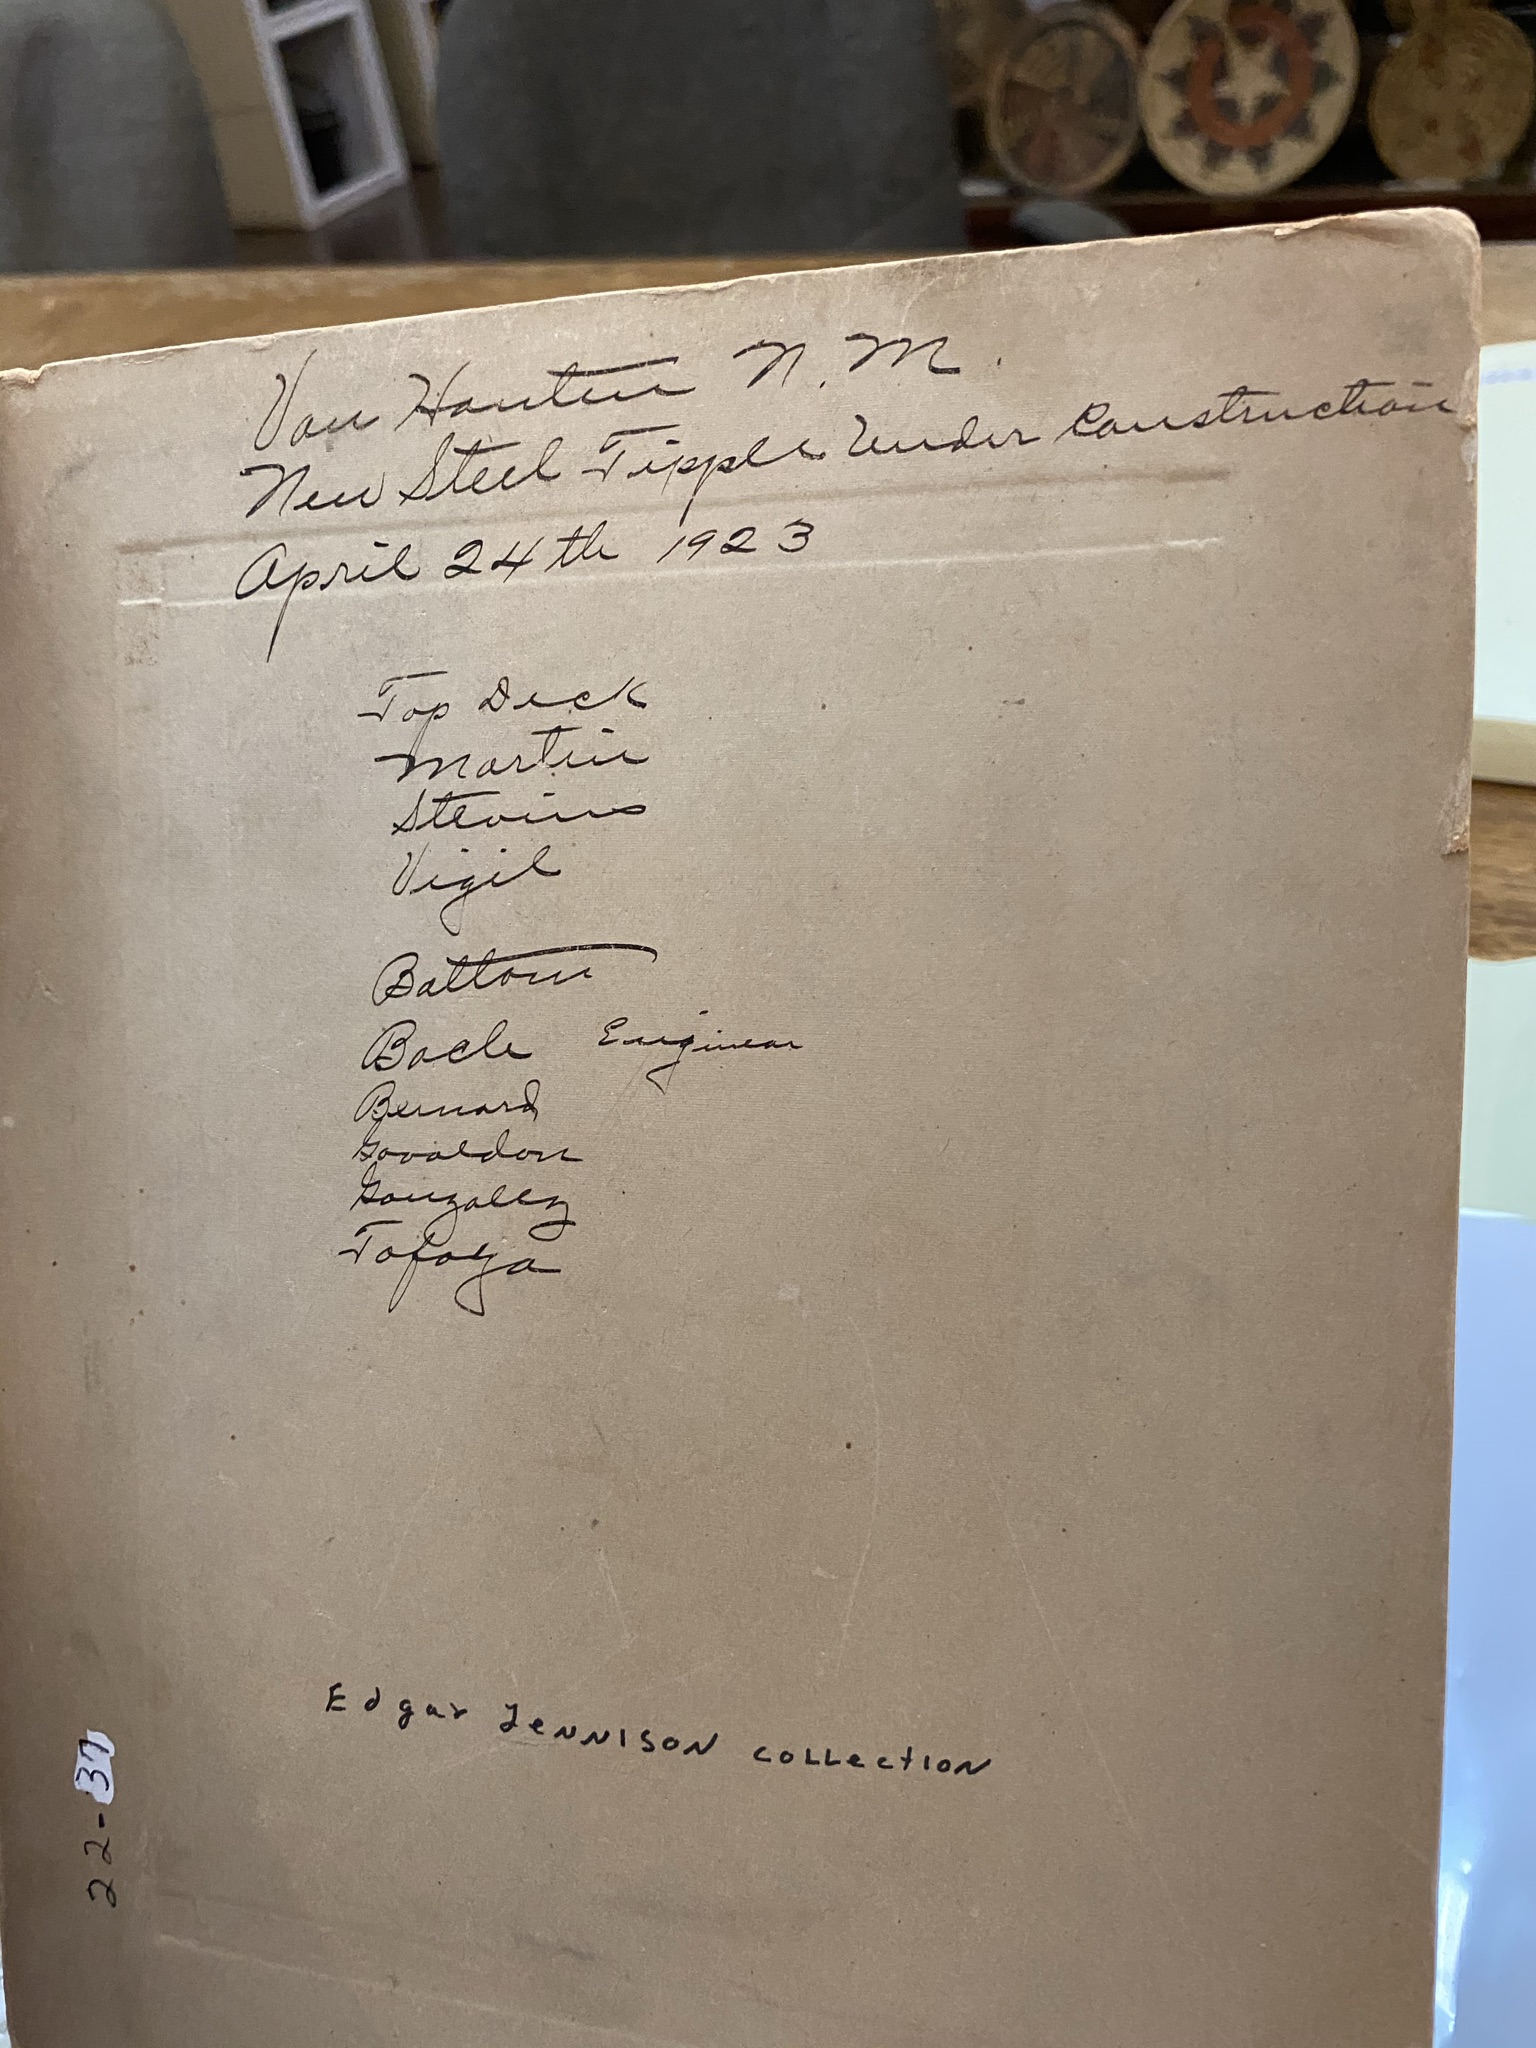 Van Houten N. M.
New Steel Tipple Under Construction
April 24th 1923
Top Deck
Martin
Stevens
Vigil
Bottom
Engineer
Bernard
Gavaldon
Gonzalez
Tafoya
Edgar Jennison collection
22-37